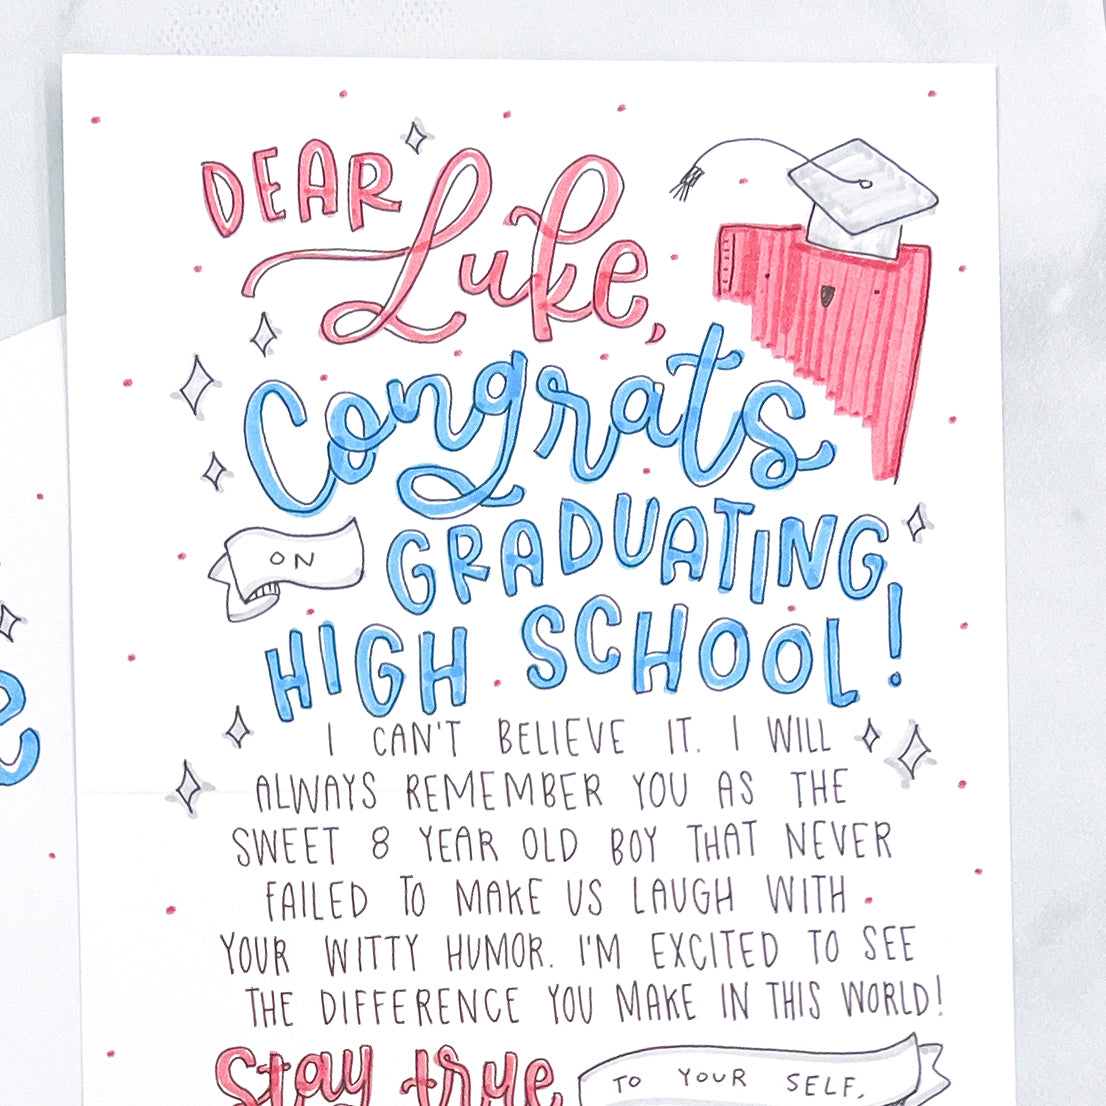 DEAR Luke,
Congrats
ON GRADUATING
HIGH SCHOOL!
I CAN'T BELIEVE IT. I WILL
ALWAYS REMEMBER YOU AS THE
SWEET 8 YEAR OLD BOY THAT NEVER
FAILED TO MAKE US LAUGH WITH
YOUR WITTY HUMOR. I'M EXCITED TO SEE
THE DIFFERENCE YOU MAKE IN THIS WORLD!
Stay true TO YOUR SELF,